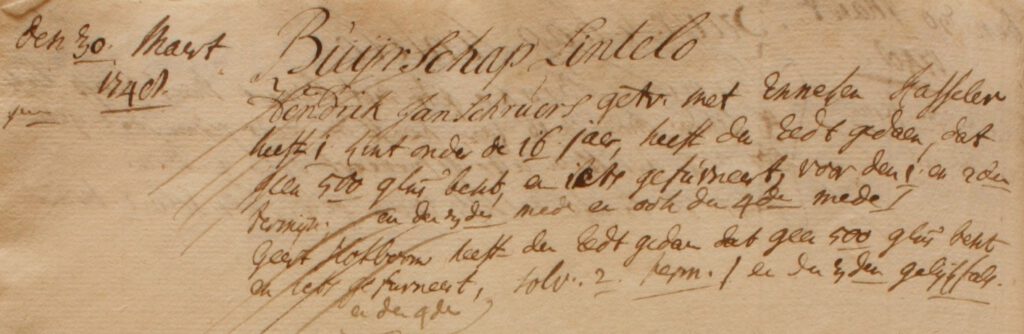 den 30. Maert
1748.
Buijrschap Lintelo
Hendrik Jan Schruers getr. met Enneken Hasseler
heeft 1 kint onder de 16 jaer, heeft den Eedt gedaen, dat
geen 500 glns besit, en iets gefurneert, voor den 1 en 2den
termijn. en den 3den mede en ook den 4den mede
Geert Kotboom heeft den Eedt gedaen dat geen 500 glns besit
en iets gefurneert, solv. 2 term. / en den 3den gelijkfals.
en den 4den